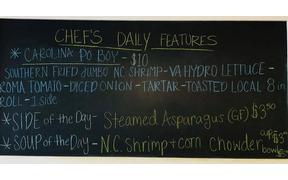 CHEF'S DAILY FEATURES
* CAROLINA PO BOY - $10
SOUTHERN FRIED JUMBO NC SHRIMP - VA HYDRO LETTUCE -
ROMA TOMATO - DICED ONION - TARTAR - TOASTED LOCAL 8 in
ROLL - 1 side
* SIDE of the Day - Steamed Asparagus (GF) $3.50
* SOUP of the Day - N.C. Shrimp + corn Chowder cup $3
bowl